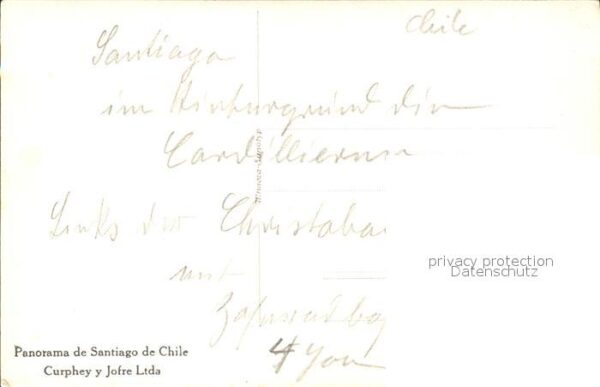 Chile
Santiago
im Hintergrund die
Cordillieren
Links der Christoba
mit
Zahnradba
4
privacy protection
Datenschutz
Panorama de Santiago de Chile
Curphey y Jofre Ltda